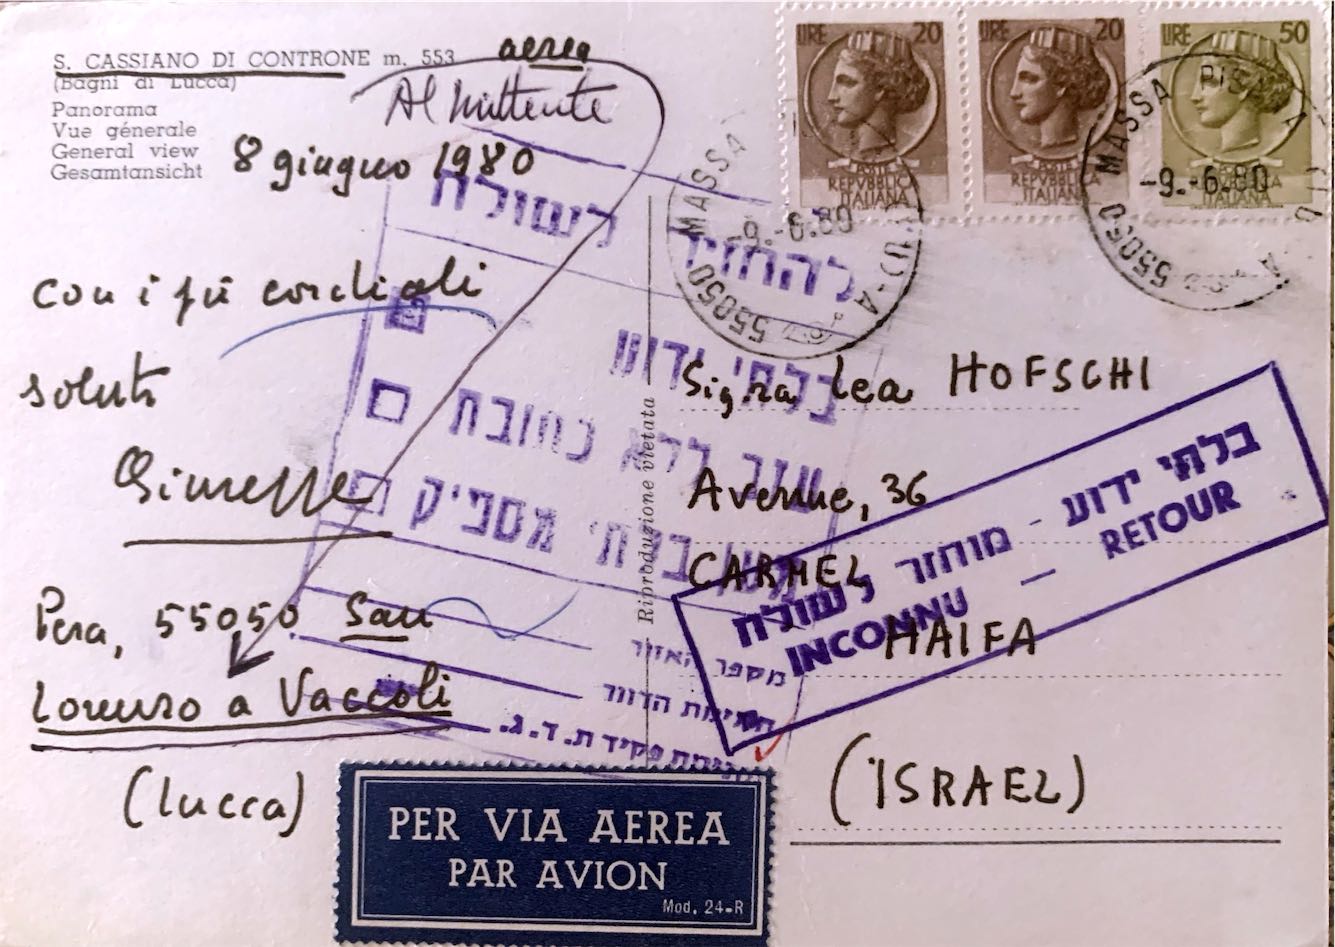 S. CASSIANO DI CONTRONE m. 553
(Bagni di Lucca)
Panorama
Vue générale
General view
Gesamtansicht
aerea
Al Mittente
8 giugno 1980
con i più cordiali
saluti
Giuseppe
Pera, 55050 San
Lorenzo a Vaccoli
(Lucca)
LIRE 20
REPVBBLICA
ITALIANA
LIRE 20
REPVBBLICA
ITALIANA
LIRE 50
ITALIANA
55050 MASSA
-9.-6.80
55050 MASSA PISANA
-9.-6.80
להחזיר לשולח
בלתי ידוע
עזב ללא כתובת
מען בלתי מספיק
מספר האזור
חתימת הדוור
חתימת פקיד ת.ד.ג.
Riproduzione vietata
Sig.ra Lea HOFSCHI
Avenue, 36
CARMEL
HAIFA
(ISRAEL)
בלתי ידוע - מוחזר לשולח
INCONNU — RETOUR
PER VIA AEREA
PAR AVION
Mod. 24-R